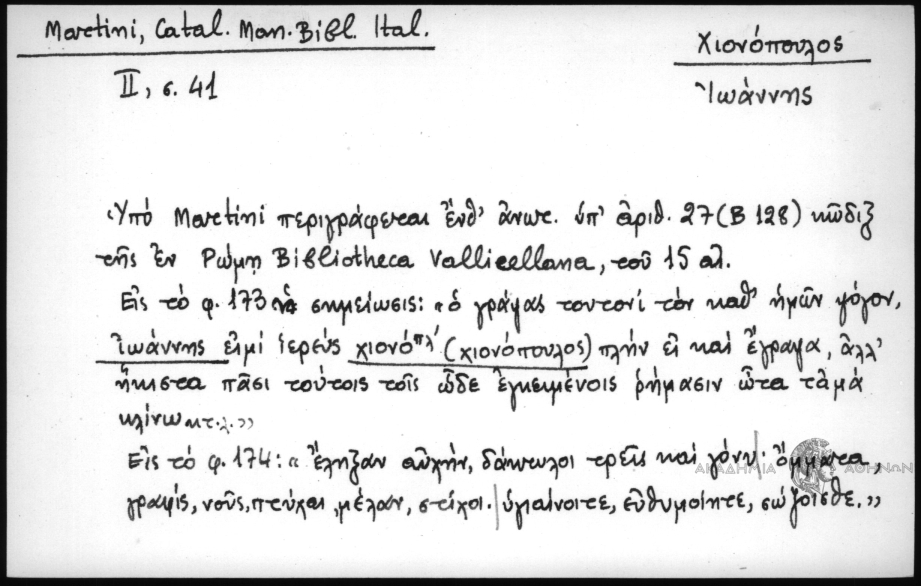 Martini, Catal. Man. Bibl. Ital.
II, σ. 41
Χιονόπουλος
Ἰωάννης
Ὑπό Martini περιγράφεται ἔνθ' ἄνωτ. ὑπ' ἀριθ. 27 (B 128) κῶδιξ
τῆς ἐν Ρώμῃ Bibliotheca Vallicellana, τοῦ 15 αἰ.
Εἰς τό φ. 173 ἡ σημείωσις: «ὁ γράψας τουτονί τόν καθ' ἡμῶν ψόγον,
Ἰωάννης εἰμί ἱερεύς χιονόπλ (χιονόπουλος) πλήν εἰ καί ἔγραψα, ἀλλ'
ἥκιστα πᾶσι τούτοις τοῖς ὧδε ἐγκειμένοις ῥήμασιν ὦτα τἀμά
κλίνω κτ.λ.»
Εἰς τό φ. 174: «ἔληξαν αὐχήν, δάκτυλοι τρεῖς καί γόνυ· ὄμματα,
γραφίς, νοῦς, πτύχαι, μέλαν, στίχοι. | ὑγιαίνοιτε, εὐθυμοίητε, σῴζοισθε.»
ΑΚΑΔΗΜΙΑ ΑΘΗΝΩΝ